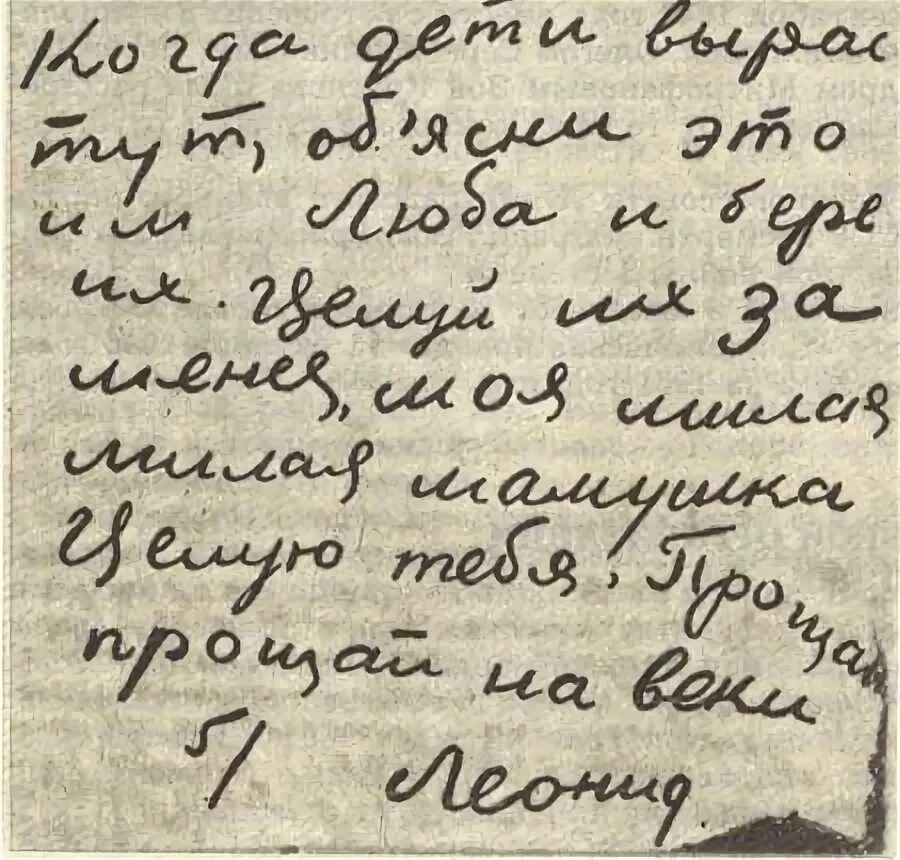 Когда дети вырас
тут, об'ясни это
им Люба и бере
их. Целуй их за
меня, моя милая
милая мамушка
Целую тебя. Проща
прощай на веки
5/ Леонид